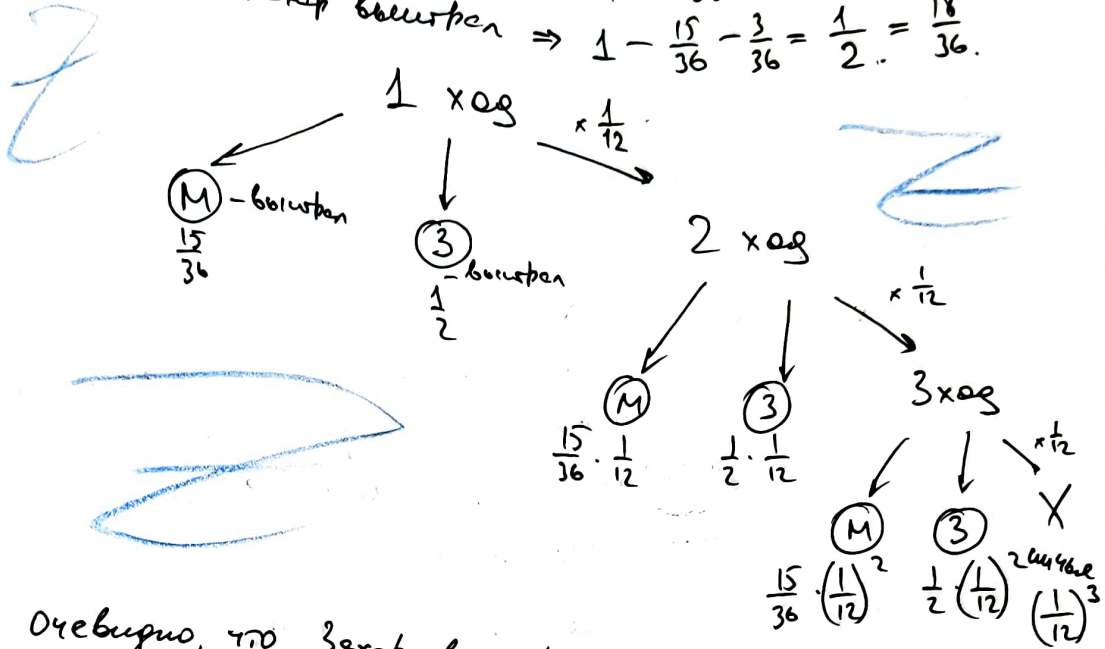 выиграл ⇒ 1 - 15/36 - 3/36 = 1/2 = 18/36.
1 ход
× 1/12
М - выиграл
15/36
З - выиграл
1/2
2 ход
× 1/12
М
15/36 · 1/12
З
1/2 · 1/12
3 ход
× 1/12
М
15/36 · (1/12)^2
З
1/2 · (1/12)^2
X
ничья
(1/12)^3
Очевидно, что Захар